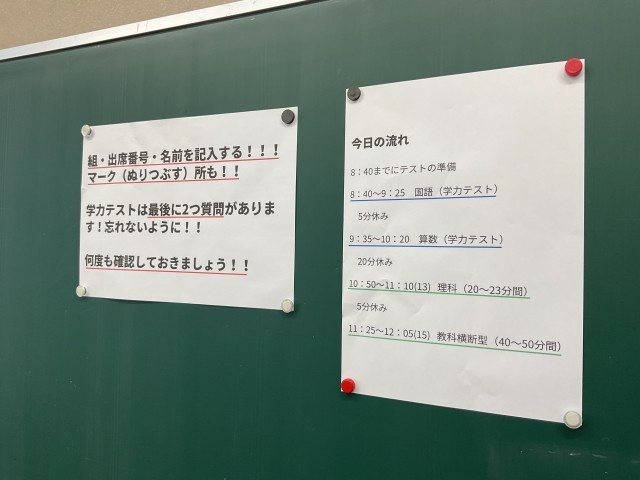 組・出席番号・名前を記入する！！！
マーク（ぬりつぶす）所も！！
学力テストは最後に2つ質問がありま
す！忘れないように！！
何度も確認しておきましょう！！
今日の流れ
8：40までにテストの準備
8：40〜9：25　国語（学力テスト）
5分休み
9：35〜10：20　算数（学力テスト）
20分休み
10：50〜11：10(13)　理科（20〜23分間）
5分休み
11：25〜12：05(15)　教科横断型（40〜50分間）